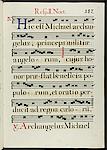 Hic est Michael archan-
gelus, princeps militiæ
angelorum, cujus
honor præstat beneficia po-
pulorum, et oratio per-
ducit ad regna cœlorum.
V. Archangelus Michael